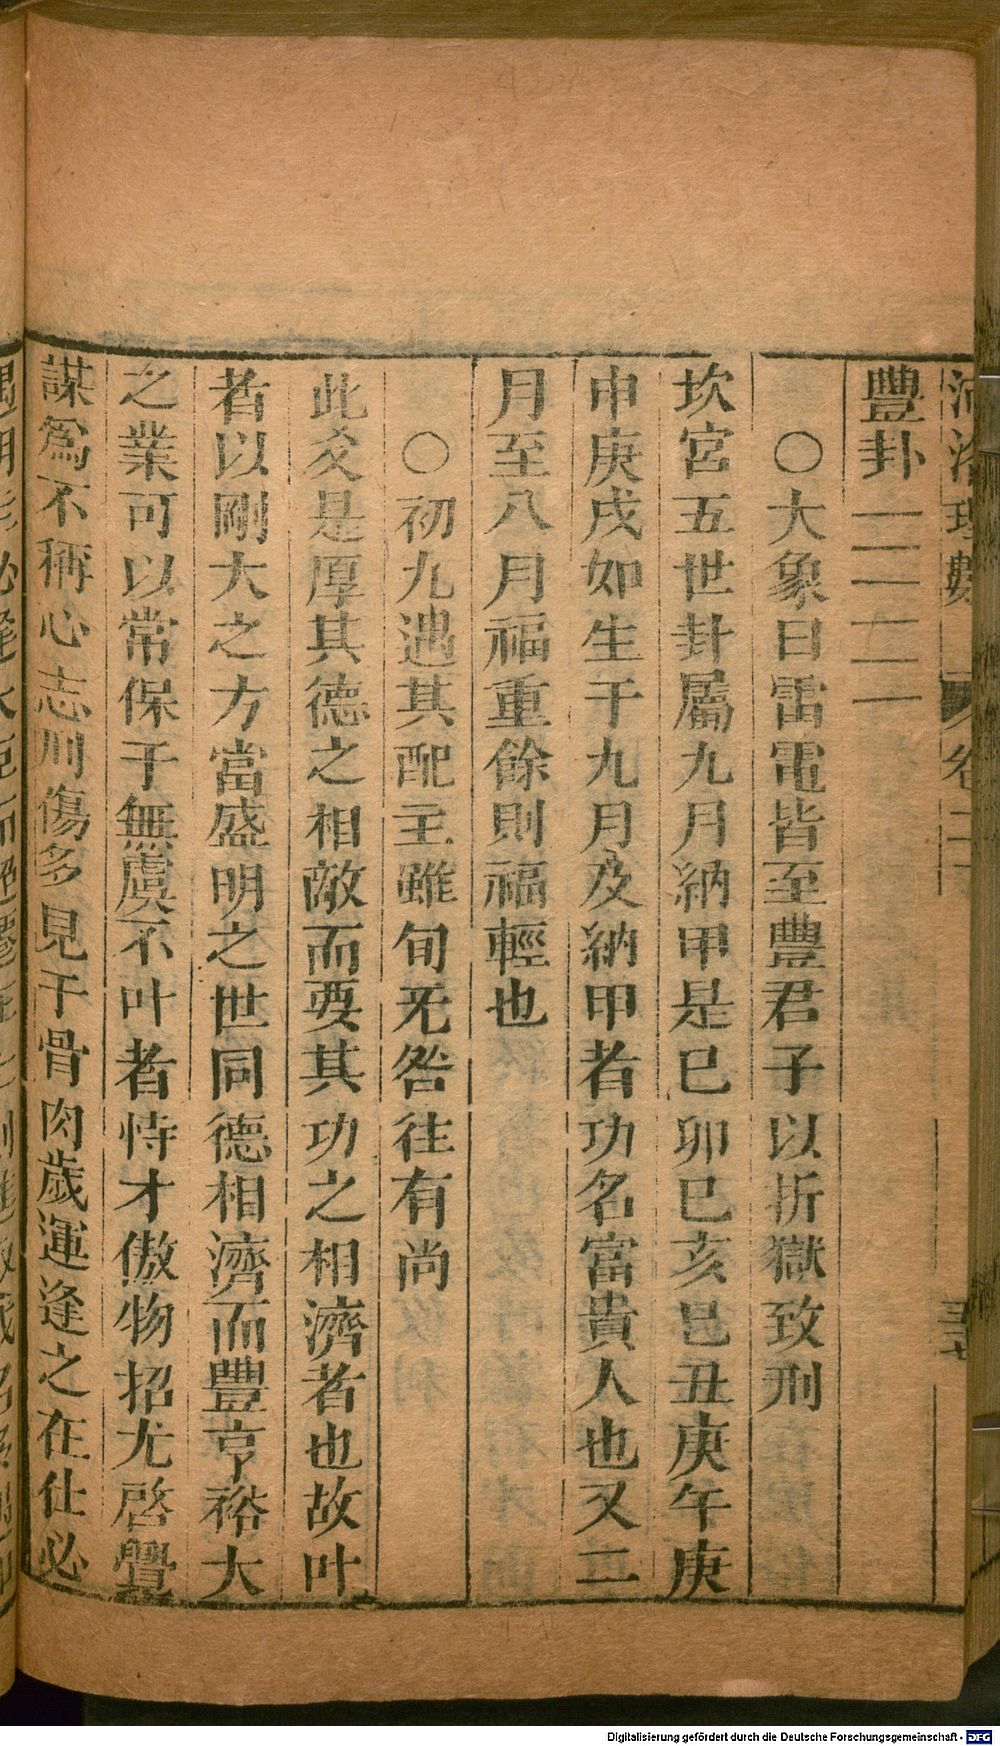 河洛理數 卷二 三七
豐卦
○大象曰雷電皆至豐君子以折獄致刑
坎宮五世卦屬九月納甲是巳卯巳亥巳丑庚午庚
申庚戌如生于九月及納甲者功名富貴人也又二
月至八月福重餘則福輕也
○初九遇其配主雖旬旡咎往有尚
此爻是厚其德之相敵而要其功之相濟者也故叶
者以剛大之方當盛明之世同德相濟而豐亨裕大
之業可以常保于無虞不叶者恃才傲物招尤啓釁
謀爲不稱心志刑傷多見于骨肉歲運逢之在仕必
Digitalisierung gefördert durch die Deutsche Forschungsgemeinschaft - DFG